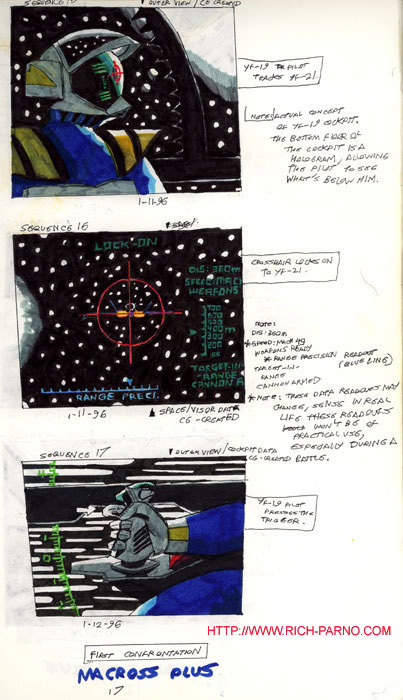 SEQUENCE 15
▼ OUTER VIEW / CG CREATED
YF-19 PILOT
TRACKS YF-21.
NOTE: ACTUAL CONCEPT
OF YF-19 COCKPIT.
THE BOTTOM FLOOR OF
THE COCKPIT IS A
HOLOGRAM, ALLOWING
THE PILOT TO SEE
WHAT'S BELOW HIM.
1-11-96
SEQUENCE 16
LOCK-ON
DIS: 360M
SPEED: MACH
WEAPONS
700
600
500
400 M
300
200
TARGET-IN-
RANGE
CANNON A
RANGE PRECI.
CROSSHAIR LOCKS ON
TO YF-21.
NOTE:
DIS: 360M
SPEED: MACH 4.9
WEAPONS READY
* RANGE PRECISION READOUT
(BLUE LINE)
TARGET-IN-
RANGE
CANNON ARMED
* NOTE: THESE DATA READOUTS MAY
CHANGE, SENSE IN REAL
LIFE THESE READOUTS
WON'T BE OF
PRACTICAL USE,
ESPECIALLY DURING A
BATTLE.
1-11-96
▲ SPACE/VISOR DATA
CG-CREATED
SEQUENCE 17
▼ OUTER VIEW/COCKPIT DATA
CG-CREATED
YF-19 PILOT
PRESSES THE
TRIGGER.
1-12-96
HTTP://WWW.RICH-PARNO.COM
FIRST CONFRONTATION
MACROSS PLUS
17